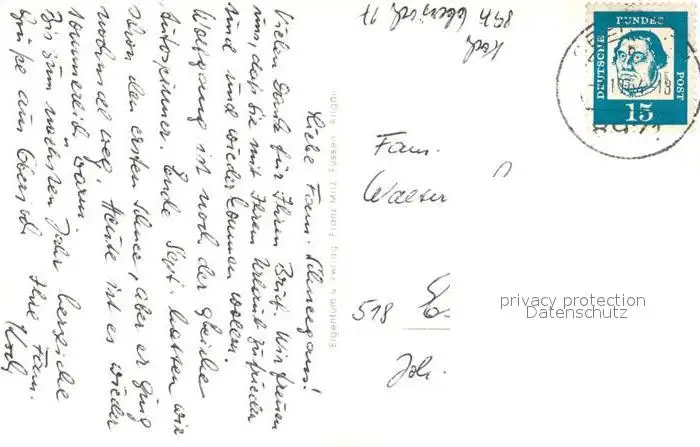 Liebe Fam. Schneegans!
Vielen Dank für Ihren Brief. Wir freuen
uns, daß Sie mit Ihrem Urlaub zufrieden
sind und wieder kommen wollen.
Wolfgang ist noch der gleiche
Autospinner. Ende Sept. hatten wir
schon den ersten Schnee, aber er ging
nochmal weg. Heute ist es wieder
sommerlich warm.
Bis zum nächsten Jahr herzliche
Grüße aus Oberjoch Ihre Fam.
Koch
Eigentum u. Verlag Franz Milz Füssen Allgäu
Koch
8971 Oberjoch 17
DEUTSCHE
BUNDES
POST
15
8971
Fam.
Walter
518
Joh.
privacy protection
Datenschutz